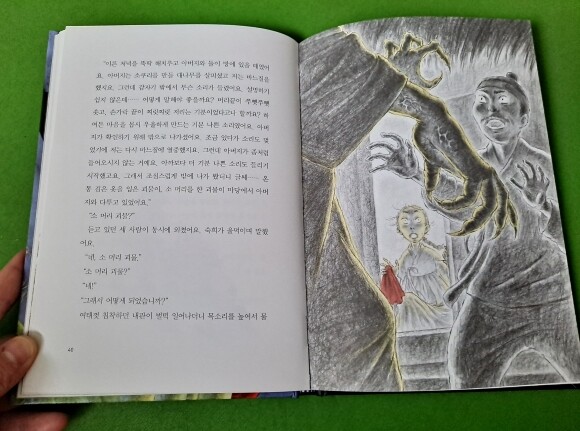 "이른 저녁을 뚝딱 해치우고 아버지와 둘이 방에 있을 때였어
요. 아버지는 소쿠리를 만들 대나무를 살피셨고 저는 바느질을
했지요. 그런데 갑자기 밖에서 무슨 소리가 들렸어요. 설명하기
쉽지 않은데…… 어떻게 말해야 좋을까요? 머리끝이 쭈뼛쭈뼛
솟고, 손가락 끝이 찌릿찌릿 저리는 기분이었다고나 할까요? 하
여튼 마음을 몹시 우울하게 만드는 기분 나쁜 소리였어요. 아버
지가 확인하기 위해 밖으로 나가셨어요. 조금 있다가 소리도 멎
었기에 저는 다시 바느질에 열중했지요. 그런데 아버지가 좀처럼
들어오시지 않는 거예요. 아까보다 더 기분 나쁜 소리도 들리기
시작했고요. 그래서 조심스럽게 방에 나가 봤더니 글쎄…… 온
통 검은 옷을 입은 괴물이, 소 머리를 한 괴물이 마당에서 아버
지와 다투고 있었어요."
"소 머리 괴물?"
듣고 있던 세 사람이 동시에 외쳤어요. 숙희가 울먹이며 말했
어요.
"네, 소 머리 괴물."
"소 머리 괴물?"
"네!"
"그래서 어떻게 되었습니까?"
여태껏 침착하던 내관이 벌떡 일어나더니 목소리를 높여서 물
46